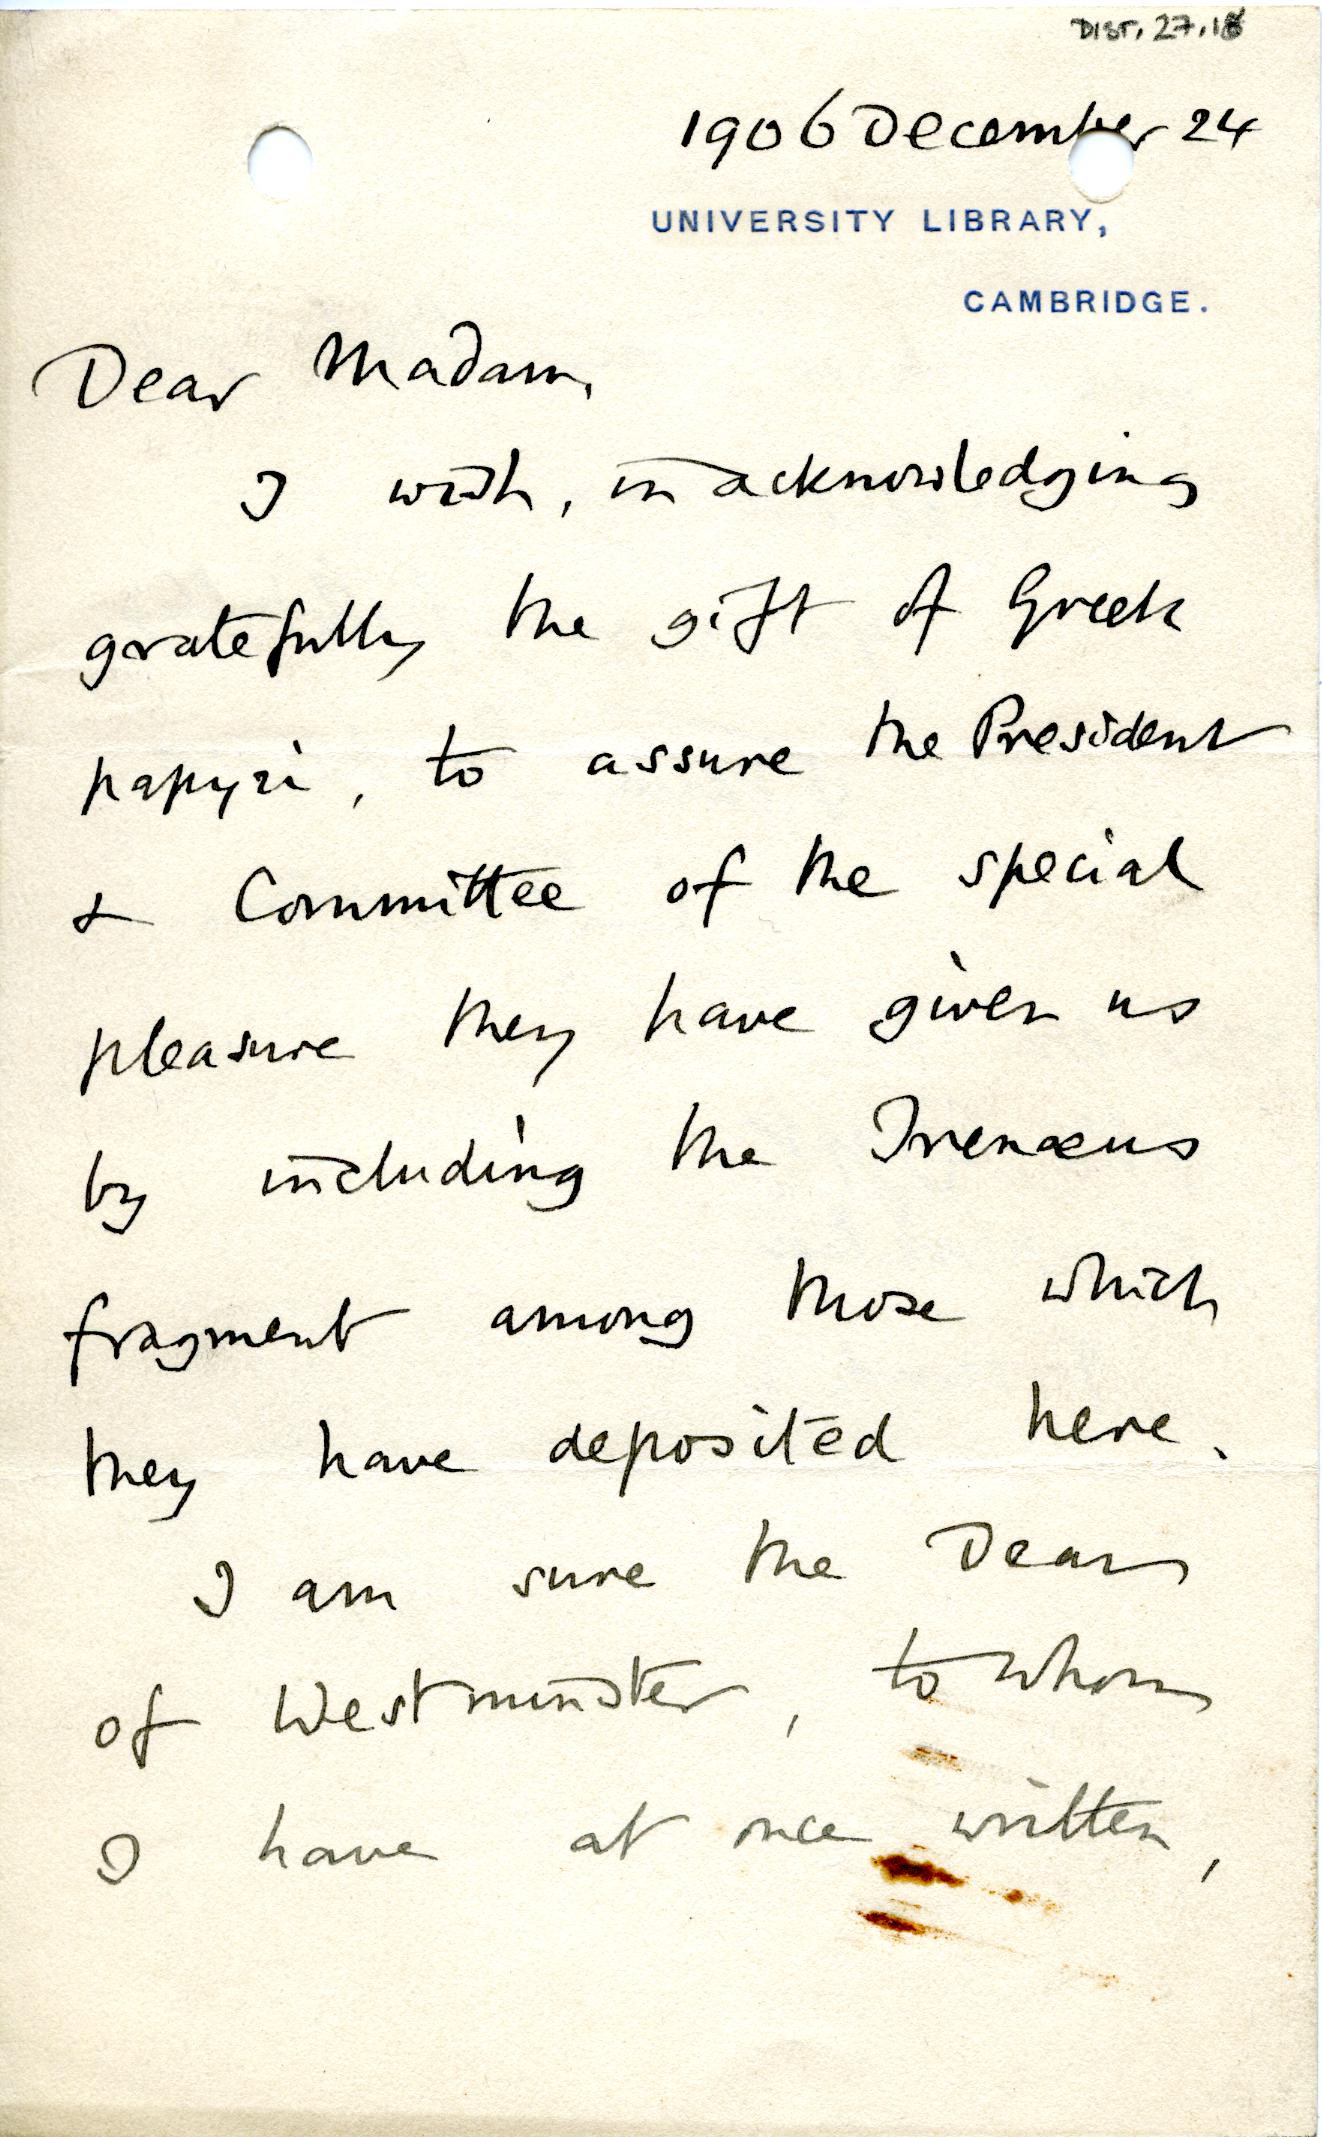 DIST. 27.18
1906 December 24
UNIVERSITY LIBRARY,
CAMBRIDGE.
Dear Madam,
I wish, in acknowledging
gratefully the gift of Greek
papyri, to assure the President
& Committee of the special
pleasure they have given us
by including the Irenæus
fragment among those which
they have deposited here.
I am sure the Dean
of Westminster, to whom
I have at once written,